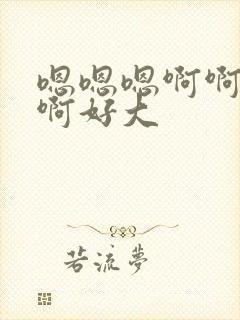 嗯嗯嗯啊啊
啊好大
若流梦